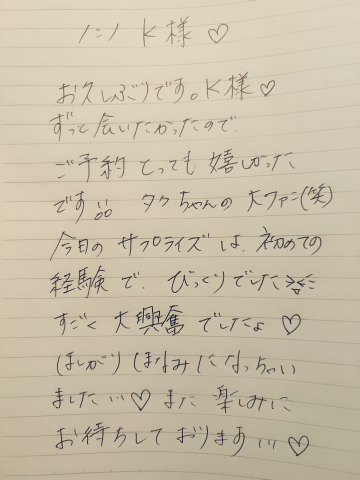 ハニハニ K様♡
お久しぶりです。K様♡
ずっと会いたかったので、
ご予約 とっても 嬉しかった
です タケちゃんの 大ファン(笑)
今日の サプライズ は、初めての
経験 で、びっくりでした
すごく 大興奮 でしたよ ♡
ほしがり ほなみ になっちゃい
ました…♡ また 楽しみに
お待ちして おります…♡